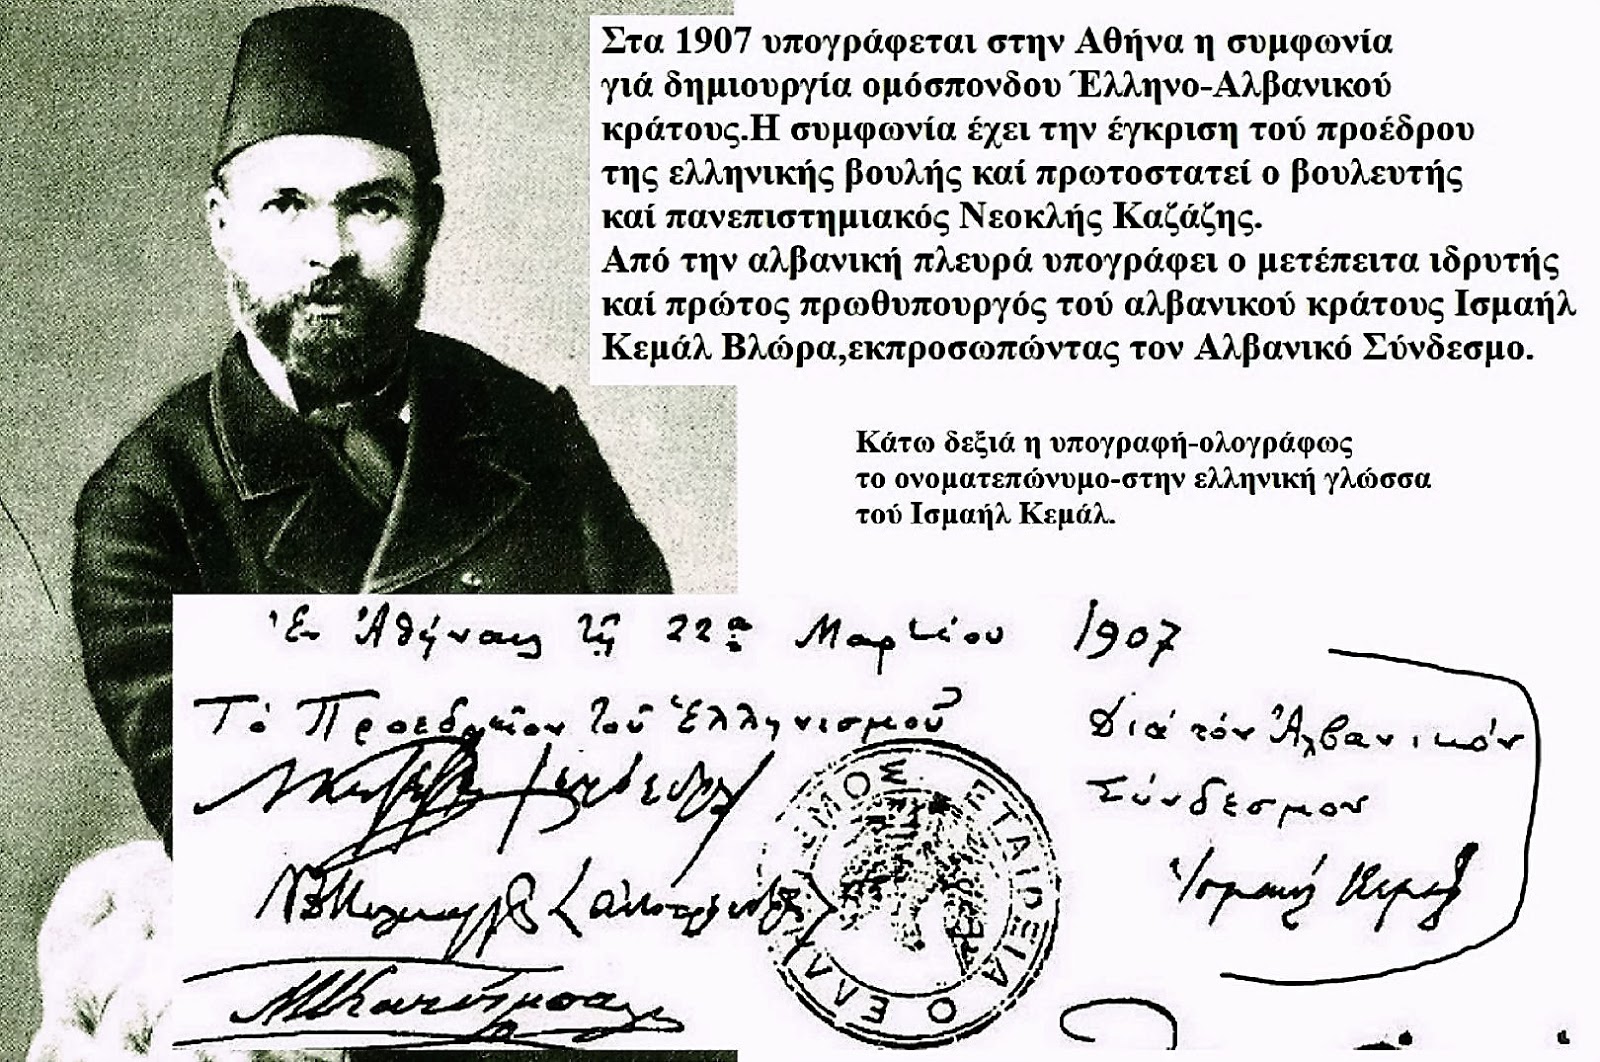 Στα 1907 υπογράφεται στην Αθήνα η συμφωνία
γιά δημιουργία ομόσπονδου Έλληνο-Αλβανικού
κράτους.Η συμφωνία έχει την έγκριση τού προέδρου
της ελληνικής βουλής καί πρωτοστατεί ο βουλευτής
καί πανεπιστημιακός Νεοκλής Καζάζης.
Από την αλβανική πλευρά υπογράφει ο μετέπειτα ιδρυτής
καί πρώτος πρωθυπουργός τού αλβανικού κράτους Ισμαήλ
Κεμάλ Βλώρα,εκπροσωπώντας τον Αλβανικό Σύνδεσμο.
Κάτω δεξιά η υπογραφή-ολογράφως
το ονοματεπώνυμο-στην ελληνική γλώσσα
τού Ισμαήλ Κεμάλ.
Ἐν Ἀθήναις τῇ 22ᾳ Μαρτίου 1907
Τό Προεδρεῖον τοῦ Ἑλληνισμοῦ
Διά τόν Ἀλβανικόν
Σύνδεσμον
Ἰσμαήλ Κεμάλ
ΕΤΑΙΡΕΙΑ Ο ΕΛΛΗΝΙΣΜΟΣ